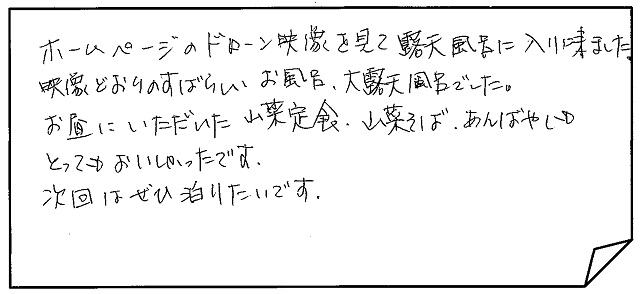 ホームページのドローン映像を見て露天風呂に入り来ました
映像どおりのすばらしい、お風呂、大露天風呂でした。
お昼にいただいた山菜定食、山菜そば、あんばやしも
とってもおいしかったです。
次回はぜひ泊りたいです。